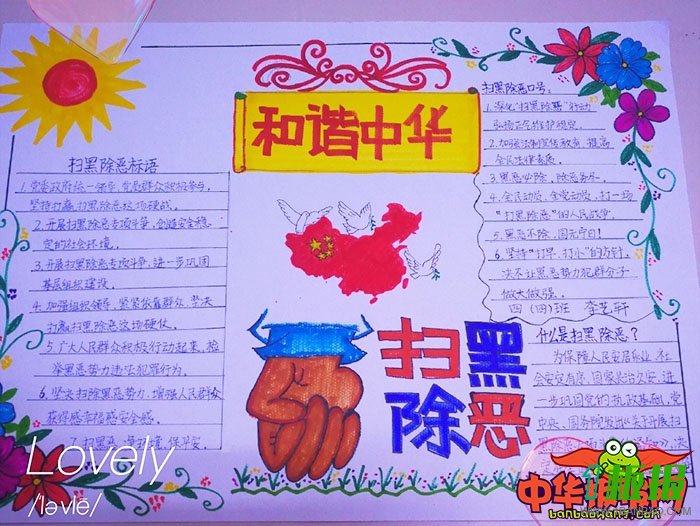 和谐中华
扫黑除恶标语
1.党委政府统一领导,党员群众积极参与,
坚持打赢扫黑除恶这场硬战。
2.开展扫黑除恶专项斗争,创造安全稳
定的社会环境。
3.开展扫黑除恶专项斗争,进一步巩固
基层组织建设。
4.加强组织领导,紧紧依靠群众,坚决
打赢扫黑除恶这场硬仗。
5.广大人民群众积极行动起来,检
举黑恶势力违法犯罪行为。
6.坚决扫除黑恶势力,增强人民群众
获得感幸福感安全感。
7.扫黑恶
保平安。
扫黑除恶口号:
1.深化"扫黑除恶"行动
弘扬正气维护稳定。
2.加强法制宣传教育,提高
全民法律素质。
3.黑恶必除,除恶务尽。
4.全民动员,全党动员,打一场
"扫黑除恶"的人民战争。
5.黑恶不除,国无宁日!
6.坚持"打早、打小"的方针,
决不让黑恶势力犯罪分子
做大做强。
四(四)班 李艺轩
扫黑
除恶
什么是扫黑除恶?
为保障人民安居乐业,社
会安定有序,国家长治久安,进
一步巩固党的执政基础,党
中央、国务院发出《关于开展扫
Lovely
/lʌvlē/
中华
banbaowang.com